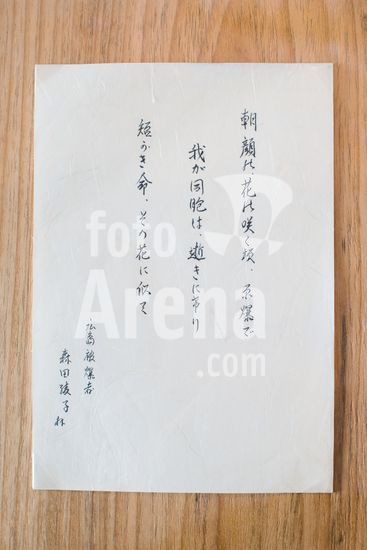 朝顔の、花の咲く頃、原爆で
我が同胞は、逝きにけり
短かき命、その花に似て
広島被爆者
森田綾子
foto
Arena
.com